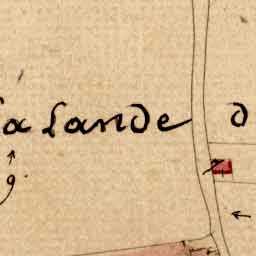 la Lande d
9.
7